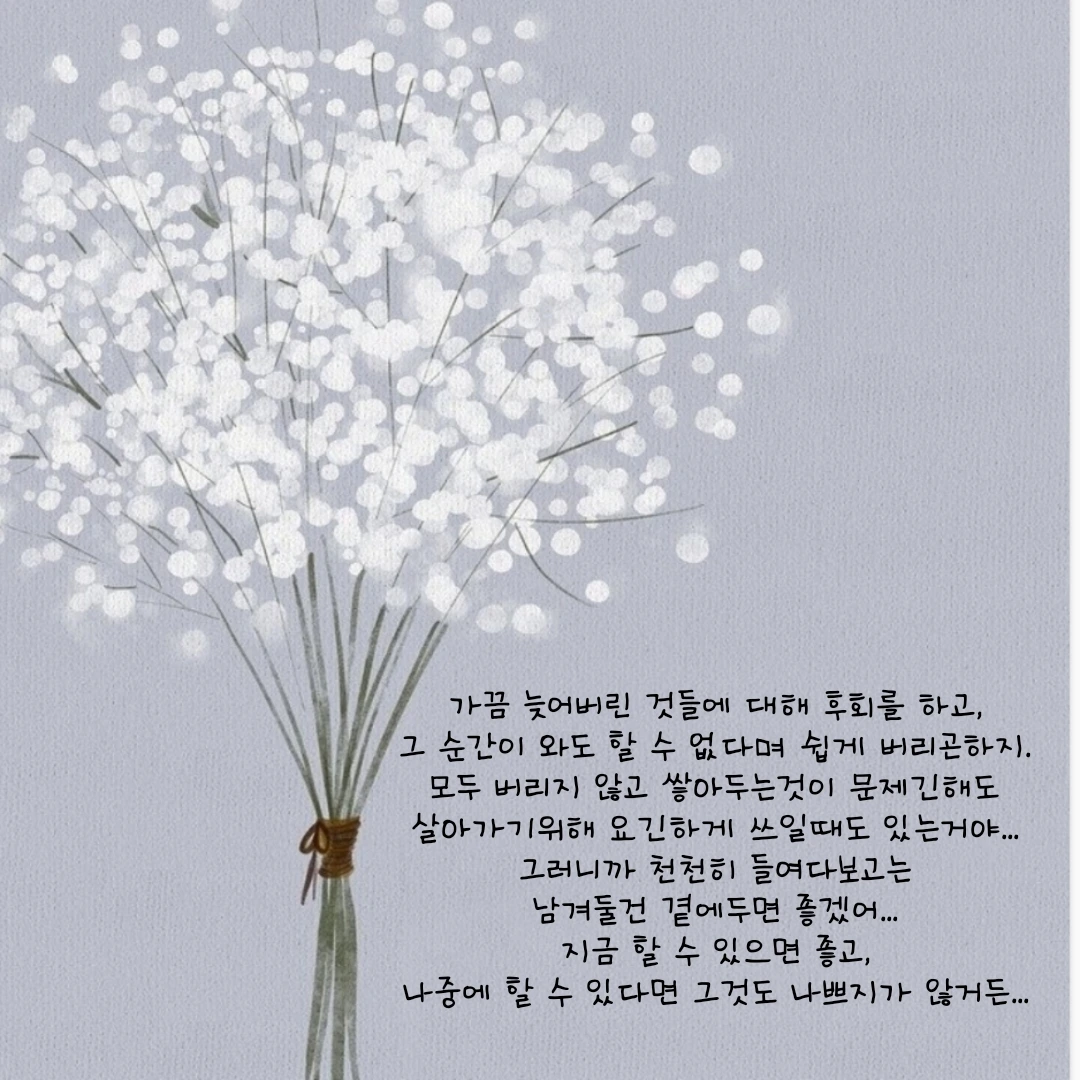 가끔 늦어버린 것들에 대해 후회를 하고,
그 순간이 와도 할 수 없다며 쉽게 버리곤하지.
모두 버리지 않고 쌓아두는것이 문제긴해도
살아가기위해 요긴하게 쓰일때도 있는거야...
그러니까 천천히 들여다보고는
남겨둘건 곁에두면 좋겠어...
지금 할 수 있으면 좋고,
나중에 할 수 있다면 그것도 나쁘지가 않거든...